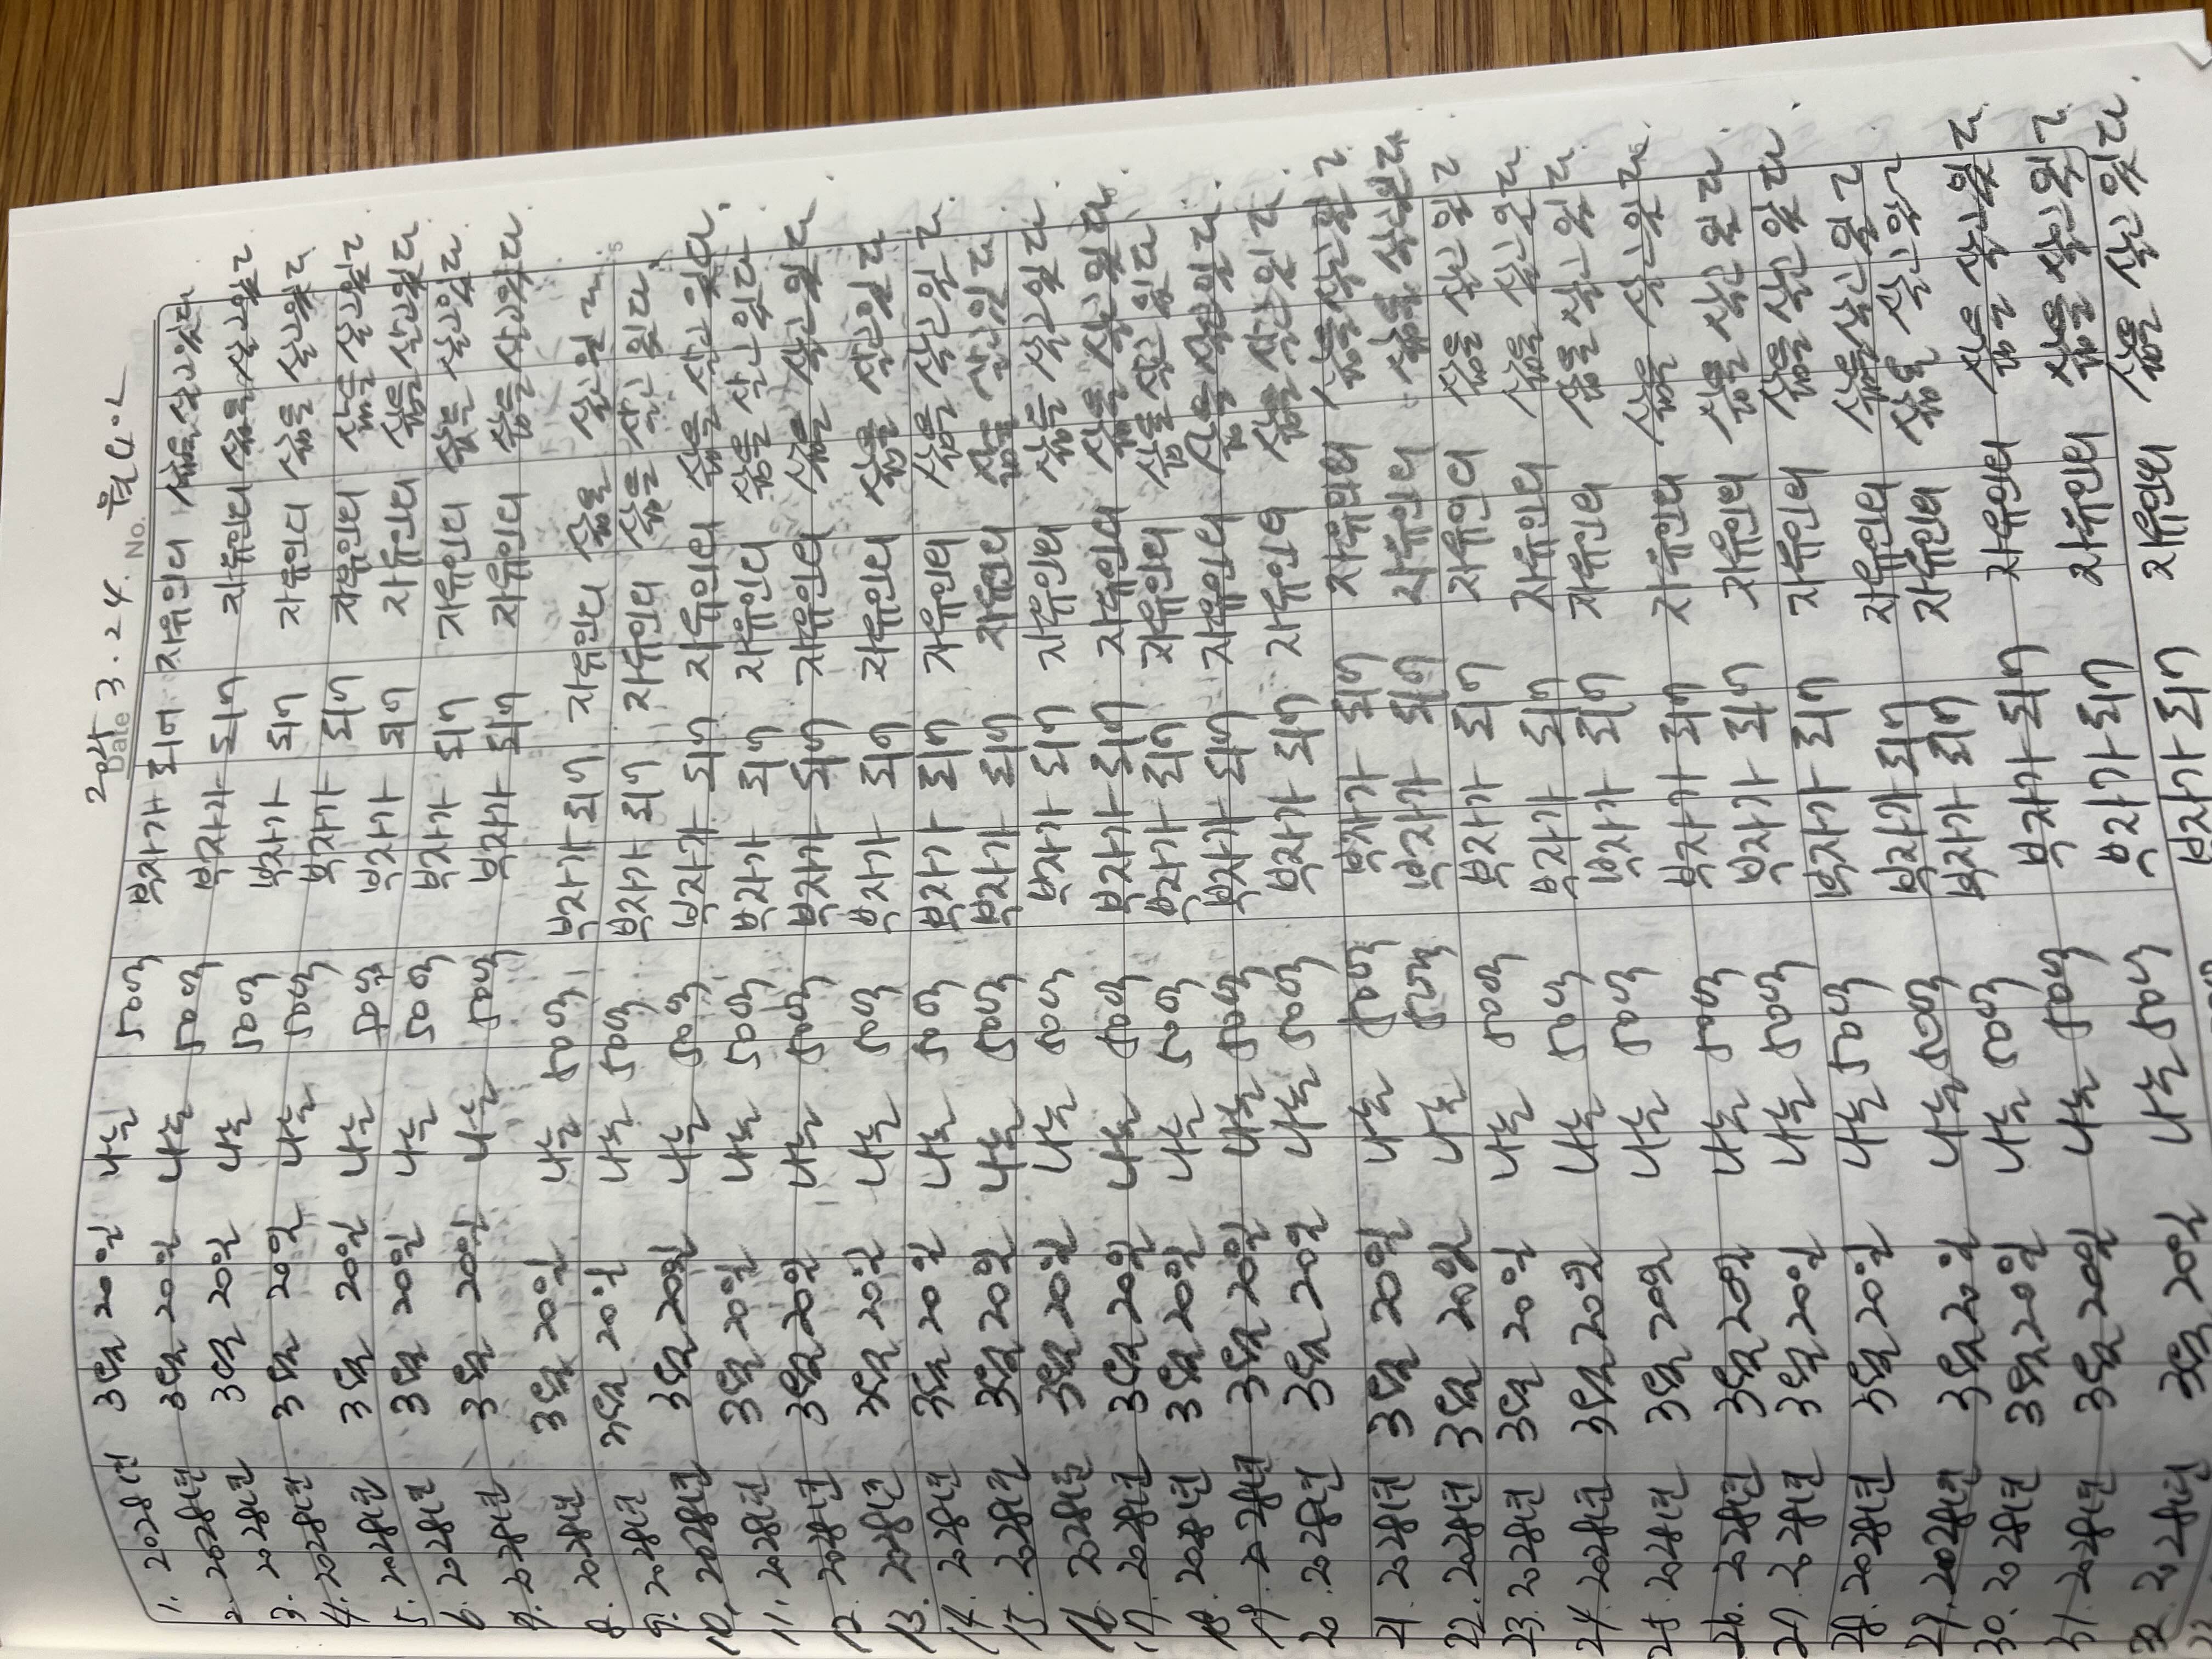 2024 Date 3. 24. No.
1. 2028년 3월 20일 나는 50억 부자가 되어 자유인의 삶을 살고있다
2. 2028년 3월 20일 나는 50억 부자가 되어 자유인의 삶을 살고있다
3. 2028년 3월 20일 나는 50억 부자가 되어 자유인의 삶을 살고있다.
4. 2028년 3월 20일 나는 50억 부자가 되어 자유인의 삶을 살고있다
5. 2028년 3월 20일 나는 50억 부자가 되어 자유인의 삶을 살고있다.
6. 2028년 3월 20일 나는 50억 부자가 되어 자유인의 삶을 살고있다.
7. 2028년 3월 20일 나는 50억 부자가 되어 자유인의 삶을 살고있다.
8. 2028년 3월 20일 나는 50억 부자가 되어 자유인의 삶을 살고있다.
9. 2028년 3월 20일 나는 50억 부자가 되어 자유인의 삶을 살고 있다.
10. 2028년 3월 20일 나는 50억 부자가 되어 자유인의 삶을 살고 있다.
11. 2028년 3월 20일 나는 50억 부자가 되어 자유인의 삶을 살고 있다.
12. 2028년 3월 20일 나는 50억 부자가 되어 자유인의 삶을 살고 있다.
13. 2028년 3월 20일 나는 50억 부자가 되어 자유인의 삶을 살고있다.
14. 2028년 3월 20일 나는 50억 부자가 되어 자유인의 삶을 살고 있다.
15. 2028년 3월 20일 나는 50억 부자가 되어 자유인의 삶을 살고있다.
16. 2028년 3월 20일 나는 50억 부자가 되어 자유인의 삶을 살고 있다.
17. 2028년 3월 20일 나는 50억 부자가 되어 자유인의 삶을 살고 있다.
18. 2028년 3월 20일 나는 50억 부자가 되어 자유인의 삶을 살고 있다.
19. 2028년 3월 20일 나는 50억 부자가 되어 자유인의 삶을 살고있다.
20. 2028년 3월 20일 나는 50억 부자가 되어 자유인의 삶을 살고있다.
21. 2028년 3월 20일 나는 50억 부자가 되어 자유인의 삶을 살고있다.
22. 2028년 3월 20일 나는 50억 부자가 되어 자유인의 삶을 살고있다.
23. 2028년 3월 20일 나는 50억 부자가 되어 자유인의 삶을 살고 있다.
24. 2028년 3월 20일 나는 50억 부자가 되어 자유인의 삶을 살고있다.
25. 2028년 3월 20일 나는 50억 부자가 되어 자유인의 삶을 살고 있다.
26. 2028년 3월 20일 나는 50억 부자가 되어 자유인의 삶을 살고있다.
27. 2028년 3월 20일 나는 50억 부자가 되어 자유인의 삶을 살고 있다.
28. 2028년 3월 20일 나는 50억 부자가 되어 자유인의 삶을 살고 있다.
29. 2028년 3월 20일 나는 50억 부자가 되어 자유인의 삶을 살고있다
30. 2028년 3월 20일 나는 50억 부자가 되어 자유인의 삶을 살고있다
31. 2028년 3월 20일 나는 50억 부자가 되어 자유인의 삶을 살고있다.
32. 2028년 3월 20일 나는 50억 부자가 되어 자유인의 삶을 살고 있다.